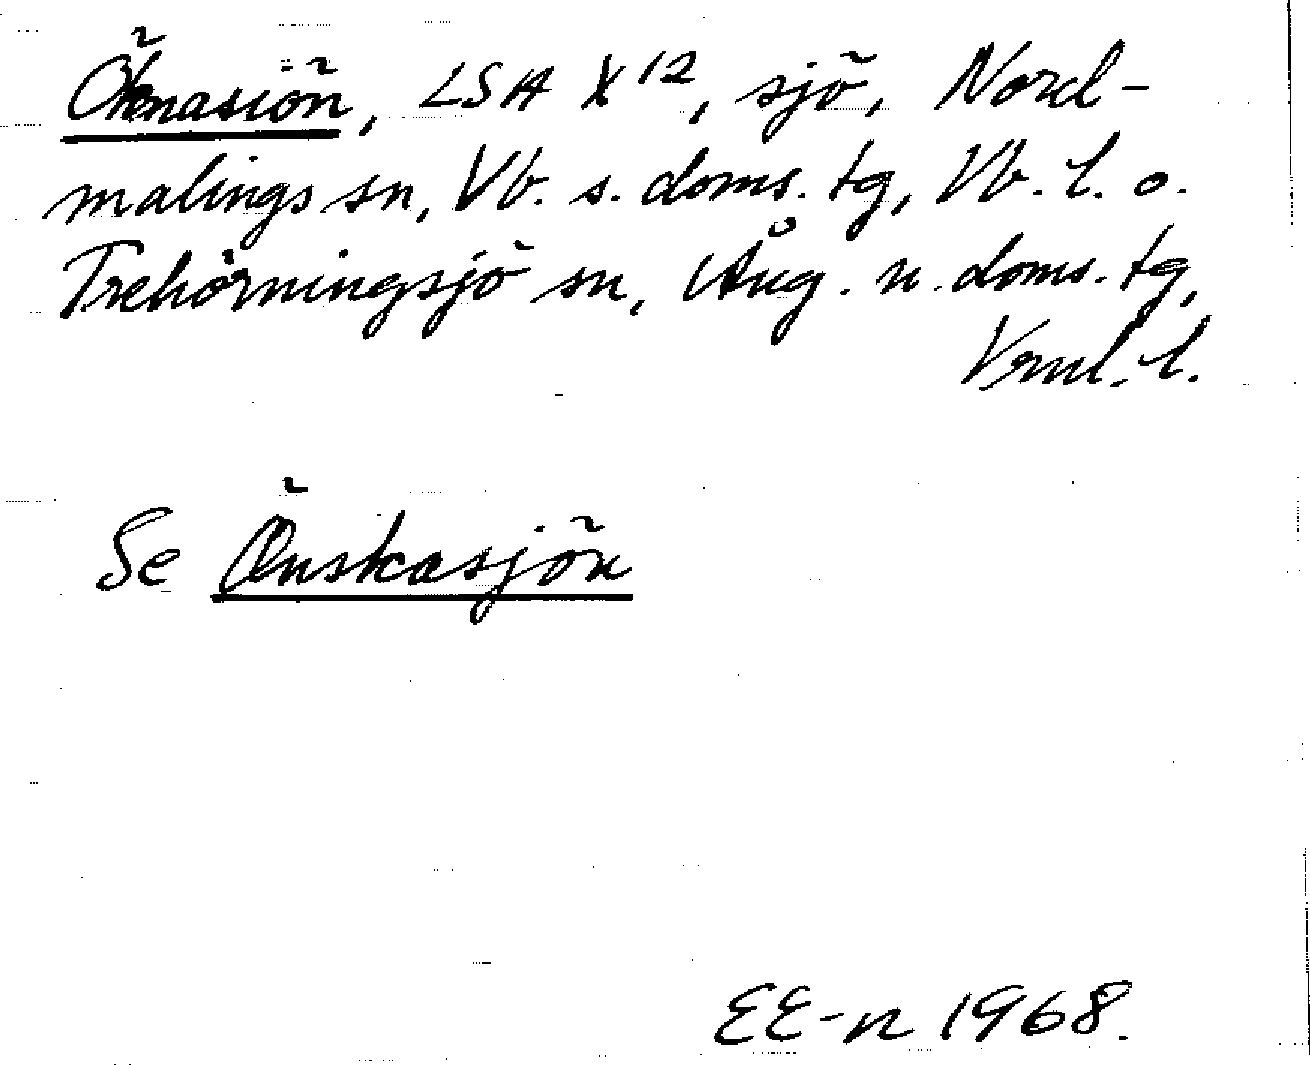 Öhnasiön, LSA X 12, sjö, Nord-
malings sn, Vb. s. doms. tg, Vb. l. o.
Trehörningsjö sn, Ång. n. doms. tg,
Vrml. l.
Se Önskasjön
EE-n 1968.